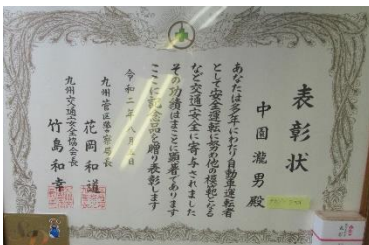 表彰状
中園瀧男殿
あなたは多年にわたり自動車運転者
として安全運転に努め他の模範となる
など交通安全に寄与されました
その功績はまことに顕著であります
ここに記念品を贈り表彰します
令和二年八月 日
九州管区警察局長
花岡和道
九州交通安全協会長
竹島和幸